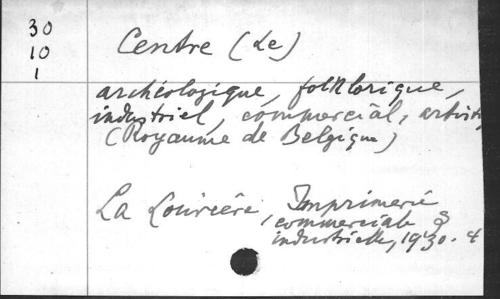 30
10
1
Centre (Le)
archéologique, folklorique,
industriel, commercial, artisti
(Royaume de Belgique)
La Louvière, Imprimerie
commerciale &
industrielle, 1930. 4